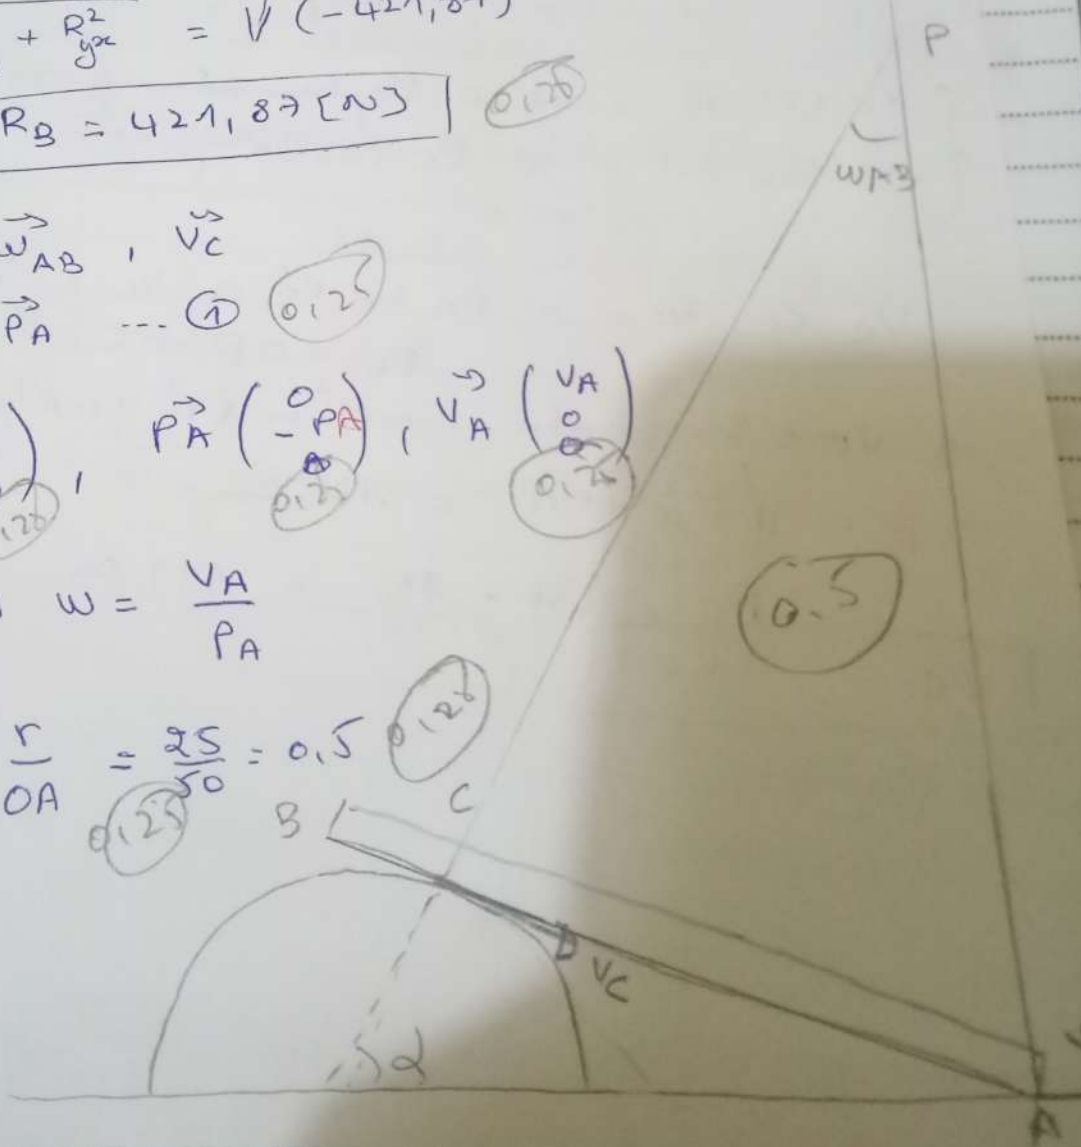 + R²yx = √(-421,87)
RB = 421,87 [N] 0,25
P
WAB
→ωAB , →VC
→PA ... ① 0,25
) , →PA ( 0 -PA 0 ) , →VA ( VA 0 0 )
,25 0,25 0,25
w = VA / PA
0.5
r / OA = 25 / 50 = 0,5 0,25
0,25
B C
VC
α
A